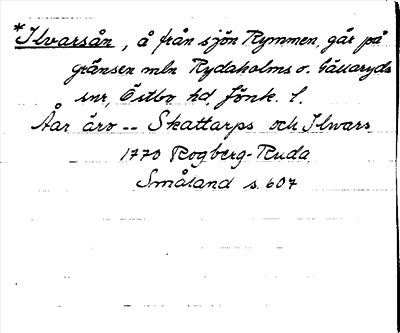 *Ilvarsån, å från sjön Rymmen, går på
gränsen mln Rydaholms o. Gällaryds
snr, Östbo hd, Jönk. l.
Åar äro -- Skattarps och Ilwars
1770 Rogberg-Ruda,
Småland s. 607